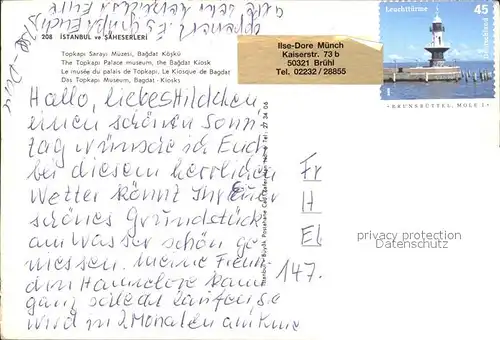 208 İSTANBUL ve ŞAHESERLERİ
Topkapı Sarayı Müzesi, Bağdat Köşkü
The Topkapi Palace museum, the Bağdat Kiosk
Le musée du palais de Topkapi, Le Kiosque de Bagdat
Das Topkapı Museum, Bagdat-Kiosks
Ilse-Dore Münch
Kaiserstr. 73 b
50321 Brühl
Tel. 02232 / 28855
Leuchttürme 45
Deutschland
BRUNSBÜTTEL, MOLE 1
Hallo, liebes Hildchen
einen schönen Sonn
tag wünsche ich Euch
bei diesem herrlichen
Wetter könnt Ihr Euer
schönes Grundstück
am Wasser schön ge
niessen. Meine Freun
din Hannelore kann
ganz schlecht laufen sie
wird in 2 Monaten am Knie
Fr
H
El
147.
privacy protection
Datenschutz